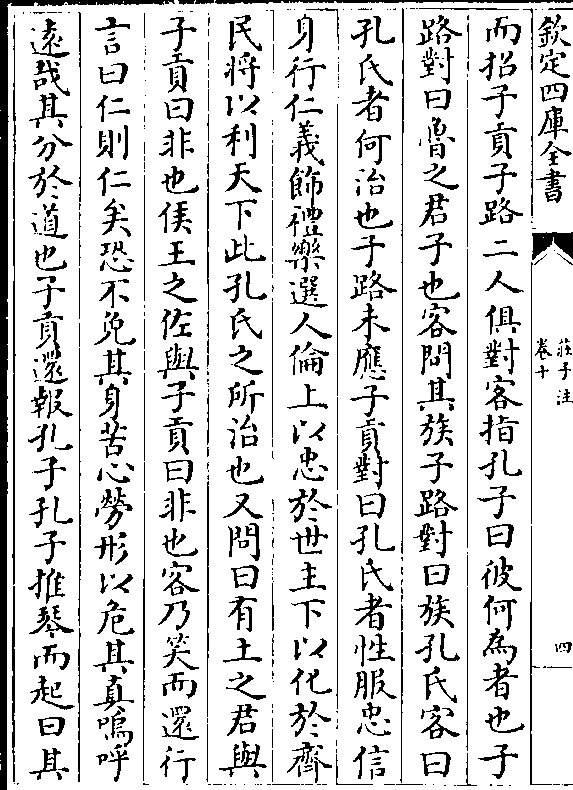 欽定四庫全書
莊子注
卷十
四
而招子貢子路二人俱對客指孔子曰彼何為者也子
路對曰魯之君子也客問其族子路對曰族孔氏客曰
孔氏者何治也子路未應子貢對曰孔氏者性服忠信
身行仁義飾禮樂選人倫上以忠於世主下以化於齊
民將以利天下此孔氏之所治也又問曰有土之君與
子貢曰非也侯王之佐與子貢曰非也客乃笑而還行
言曰仁則仁矣恐不免其身苦心勞形以危其真嗚呼
遠哉其分於道也子貢還報孔子孔子推琴而起曰其